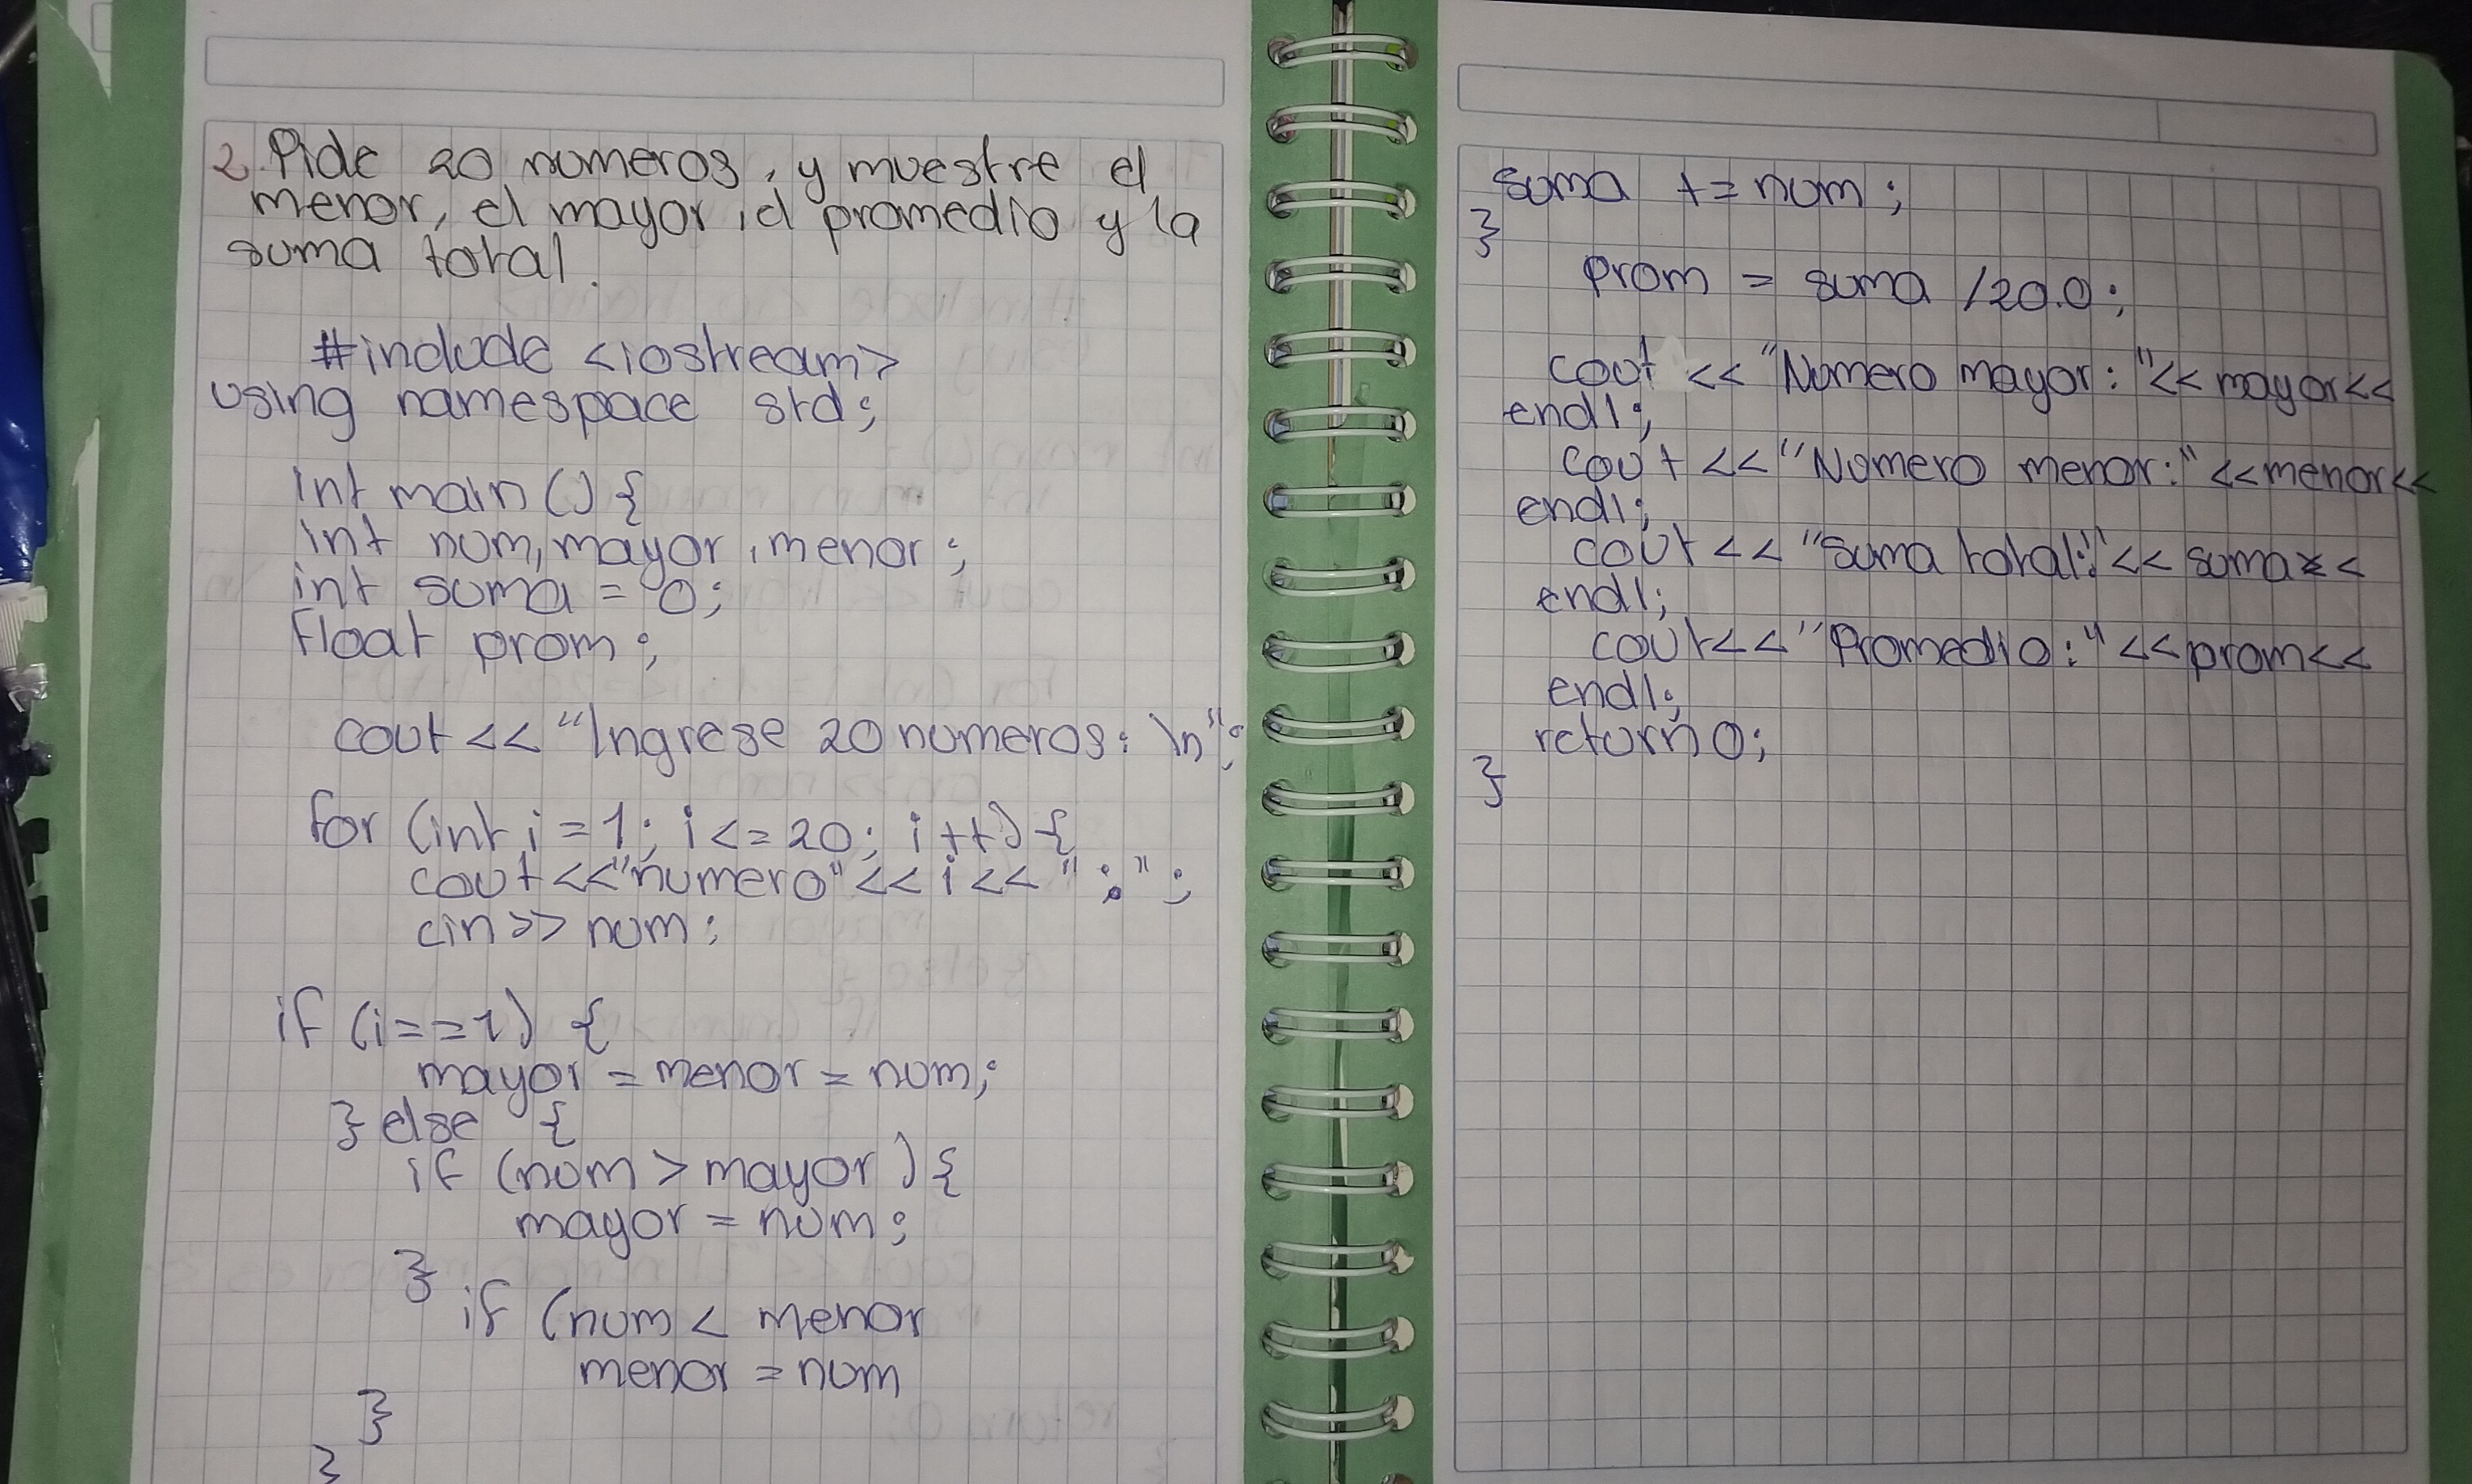 2. Pide 20 numeros, y muestre el
menor, el mayor, el promedio y la
suma total.
#include <iostream>
using namespace std;
int main () {
int num, mayor, menor;
int suma = 0;
float prom;
cout << "Ingrese 20 numeros: \n";
for (int i = 1; i <= 20; i ++) {
cout << "numero" << i << ":";
cin >> num;
if (i == 1) {
mayor = menor = num;
} else {
if (num > mayor) {
mayor = num;
}
if (num < menor
menor = num
}
}
suma += num;
}
prom = suma /20.0;
cout << "Numero mayor: "<< mayor<<
endl;
cout << "Numero menor:" <<menor<<
endl;
cout << "suma total:"<< suma<<
endl;
cout<< "Promedio:" <<prom<<
endl;
return 0;
}